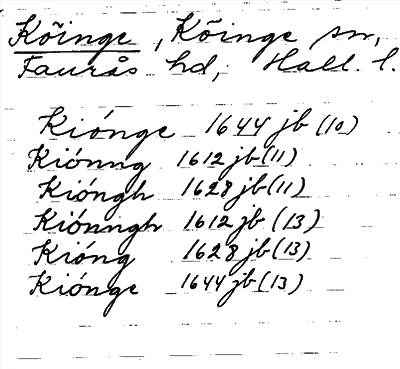 Köinge, Köinge sn,
Faurås hd, Hall. l.
Kiónge 1644 jb (10)
Kiónng 1612 jb (11)
Kióngh 1628 jb (11)
Kiónngh 1612 jb (13)
Kióng 1628 jb (13)
Kiónge 1644 jb (13)